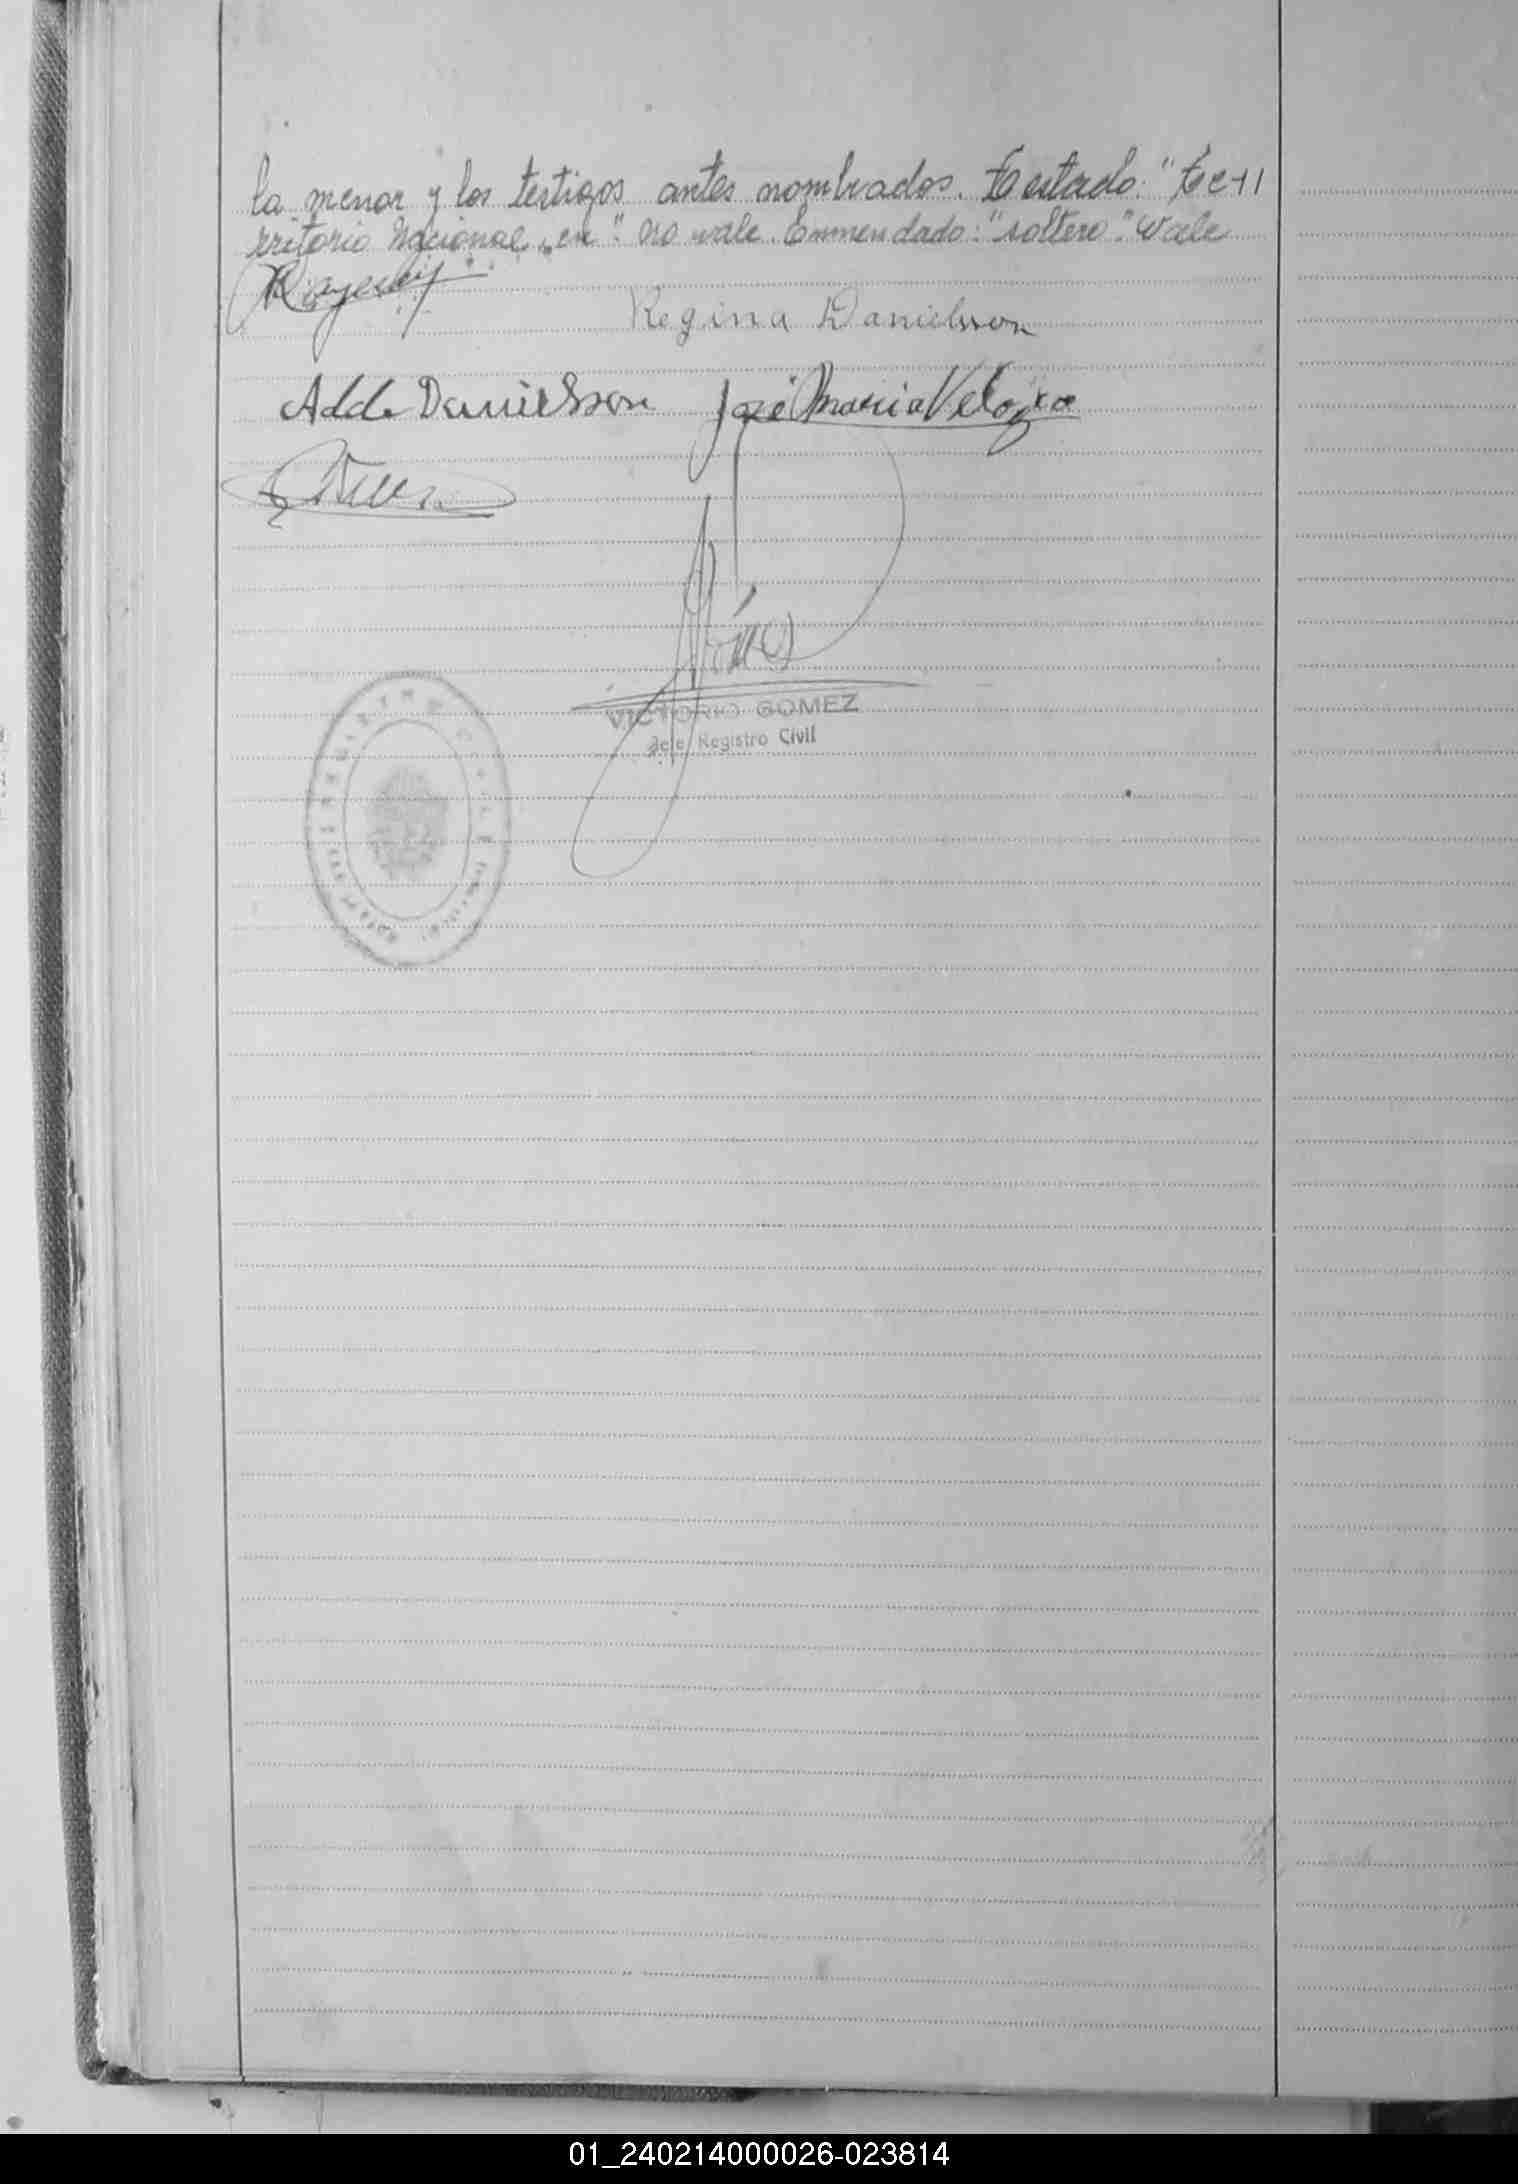 la menor y los testigos antes nombrados. Testado: "Te-
rritorio Nacional, en". No vale. Enmendado: "soltero". Vale
Regina Danielsson
Adde Danielsson José Maria Velozo
Gómez
VICTORIO GOMEZ
Jefe Registro Civil
01_240214000026-023814